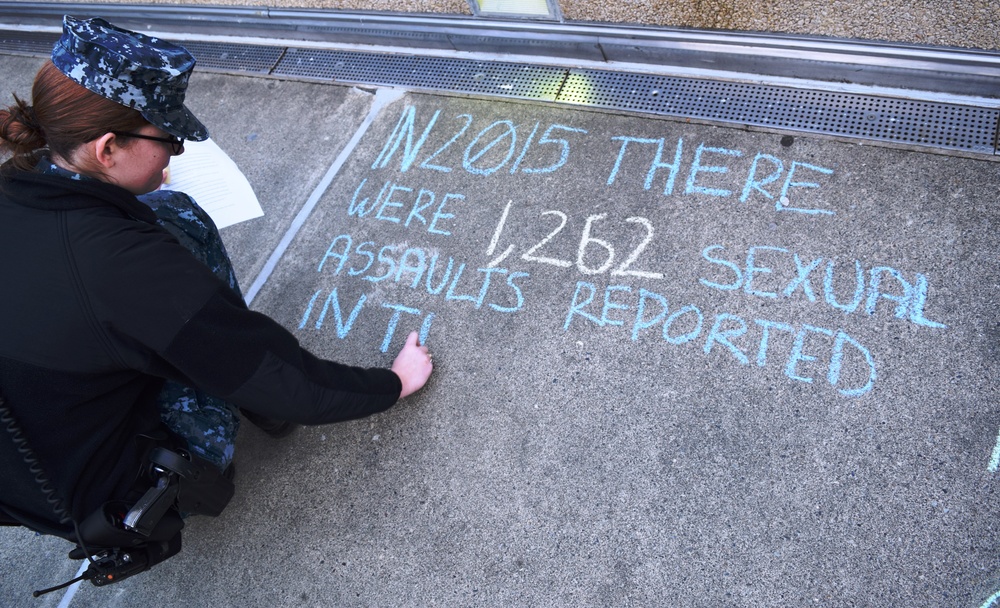 IN 2015 THERE
WERE 1,262 SEXUAL
ASSAULTS REPORTED
IN T